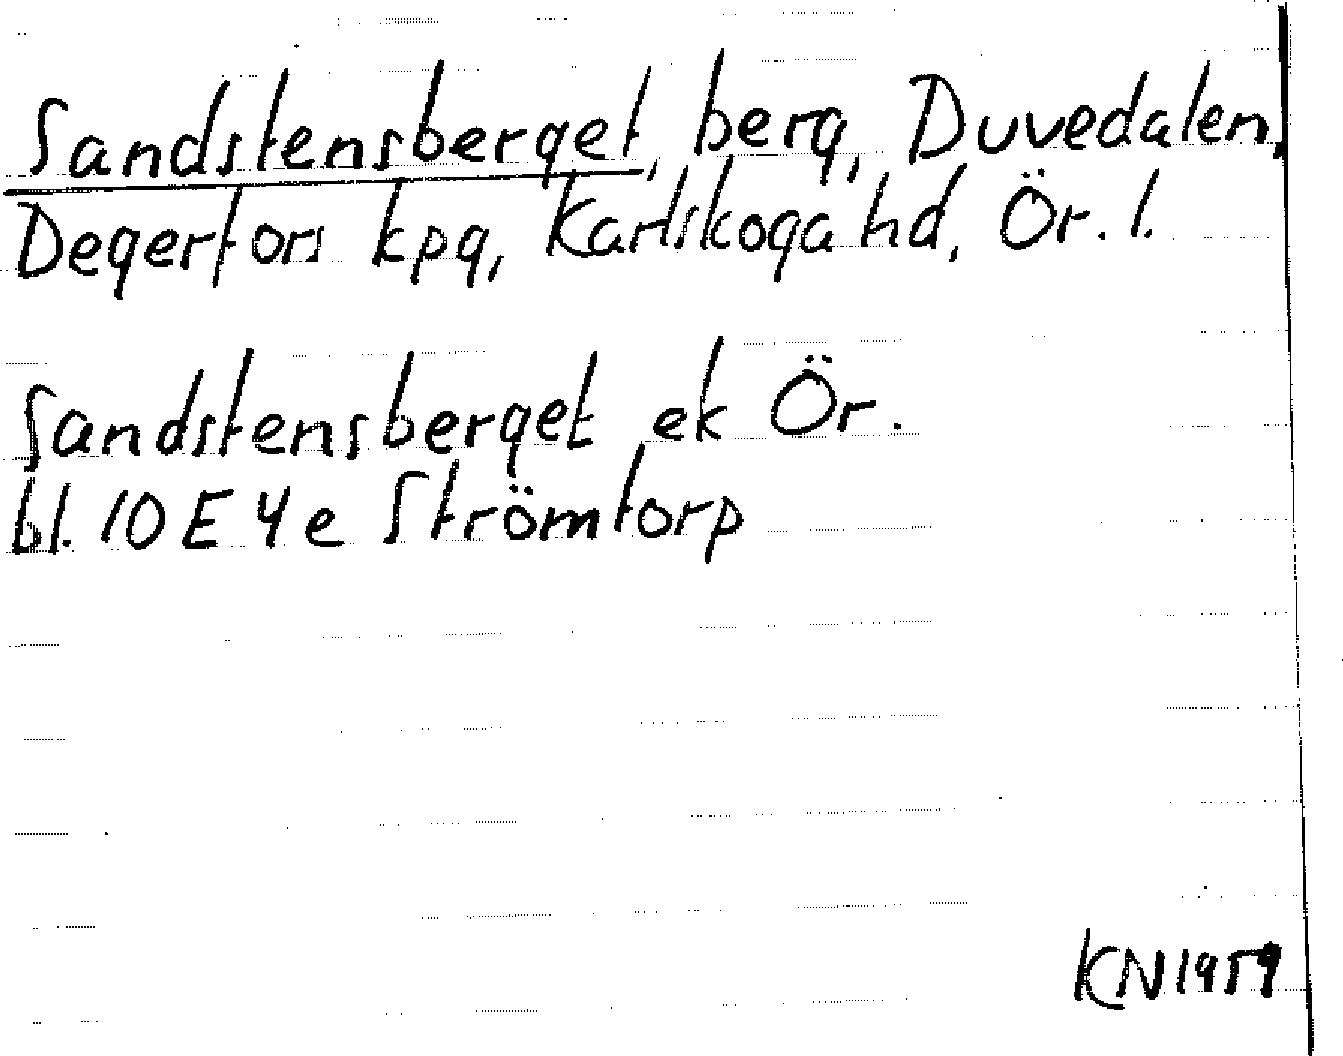 Sandstensberget, berg, Duvedalen,
Degerfors kpg, Karlskoga hd, Ör. l.
Sandstensberget ek Ör.
bl. 10 E 4 e Strömtorp
KN 1959